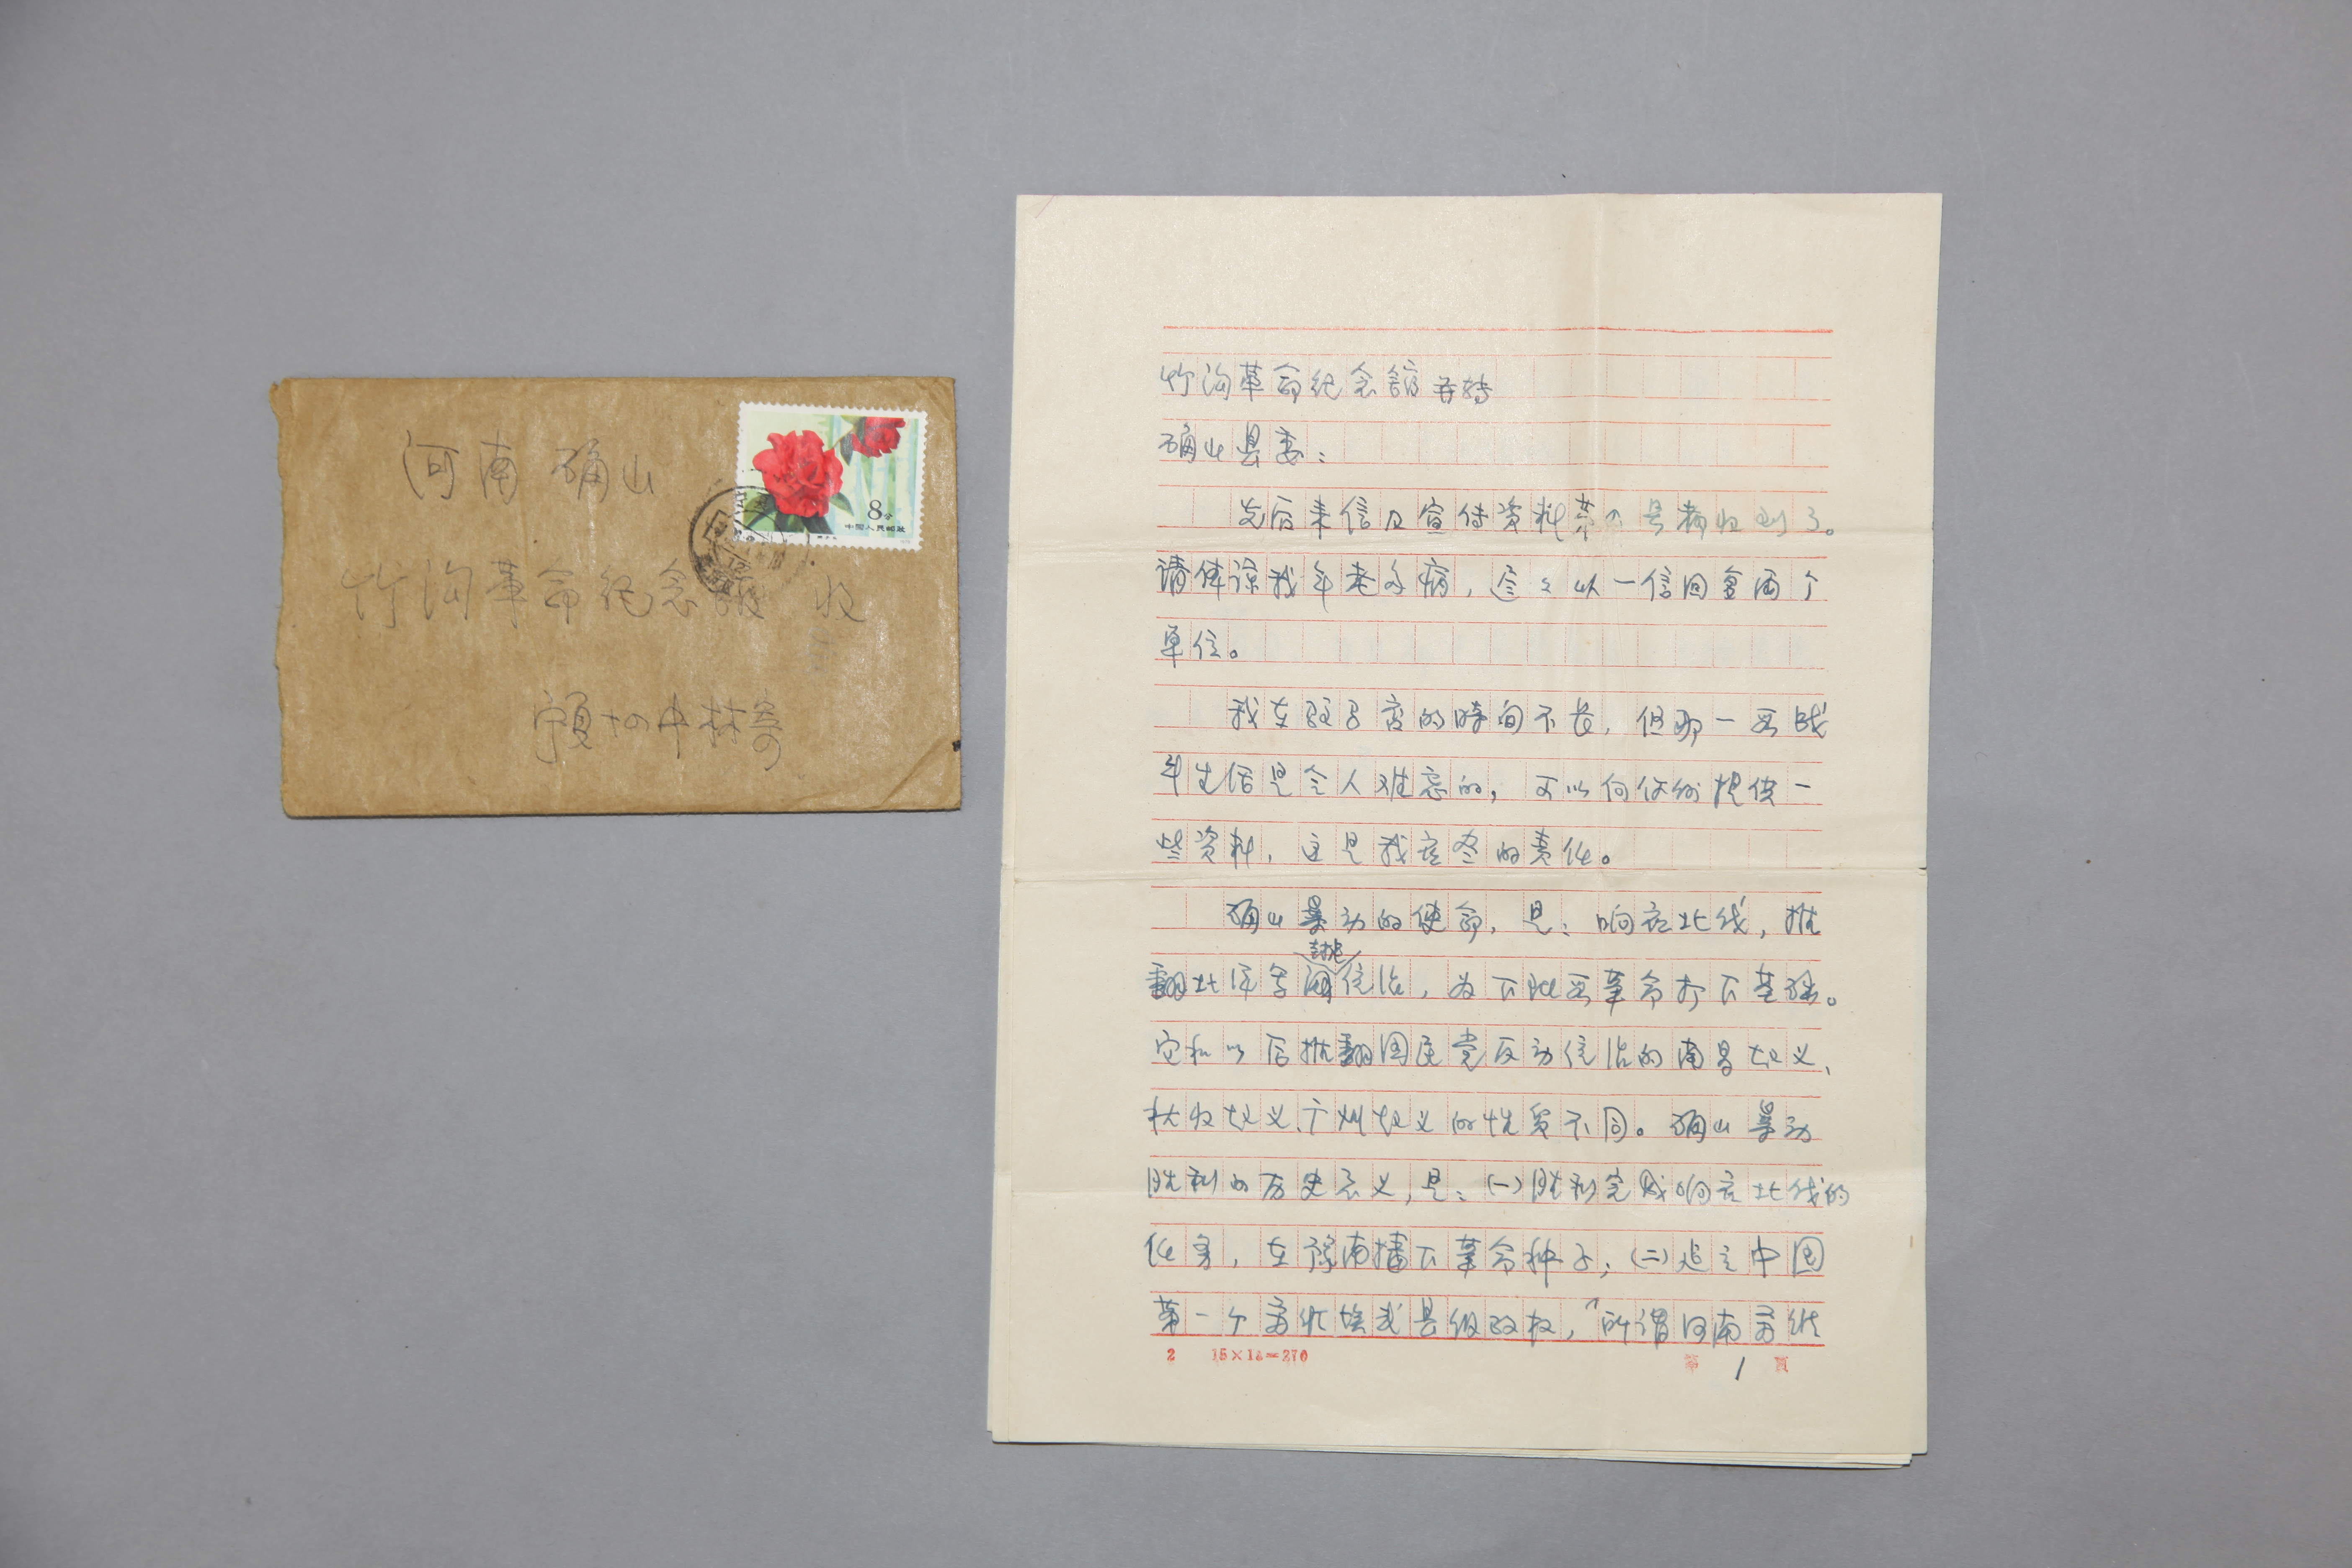 河南 确山
竹沟革命纪念馆 收
8分
中国人民邮政
竹沟革命纪念馆并转
确山县委：
先后来信及宣传资料等 都收到了。
请体谅我年老多病， 以一信回复两个
单位。
我在驻马店的时间不长，但那一段战
斗生活是令人难忘的，可以向你们提供一
些资料，这是我应尽的责任。
确山暴动的使命，是：响应北伐，推
翻北洋军阀封建统治，为下阶段革命打下基础。
它和以后推翻国民党反动统治的南昌起义、
秋收起义、广州起义的性质不同。确山暴动
胜利的历史意义，是：（一）胜利完成响应北伐的
任务，在豫南播下革命种子；（二）建立中国
第一个 县级政权，“所谓河南
2 15×18=270
第 1 页